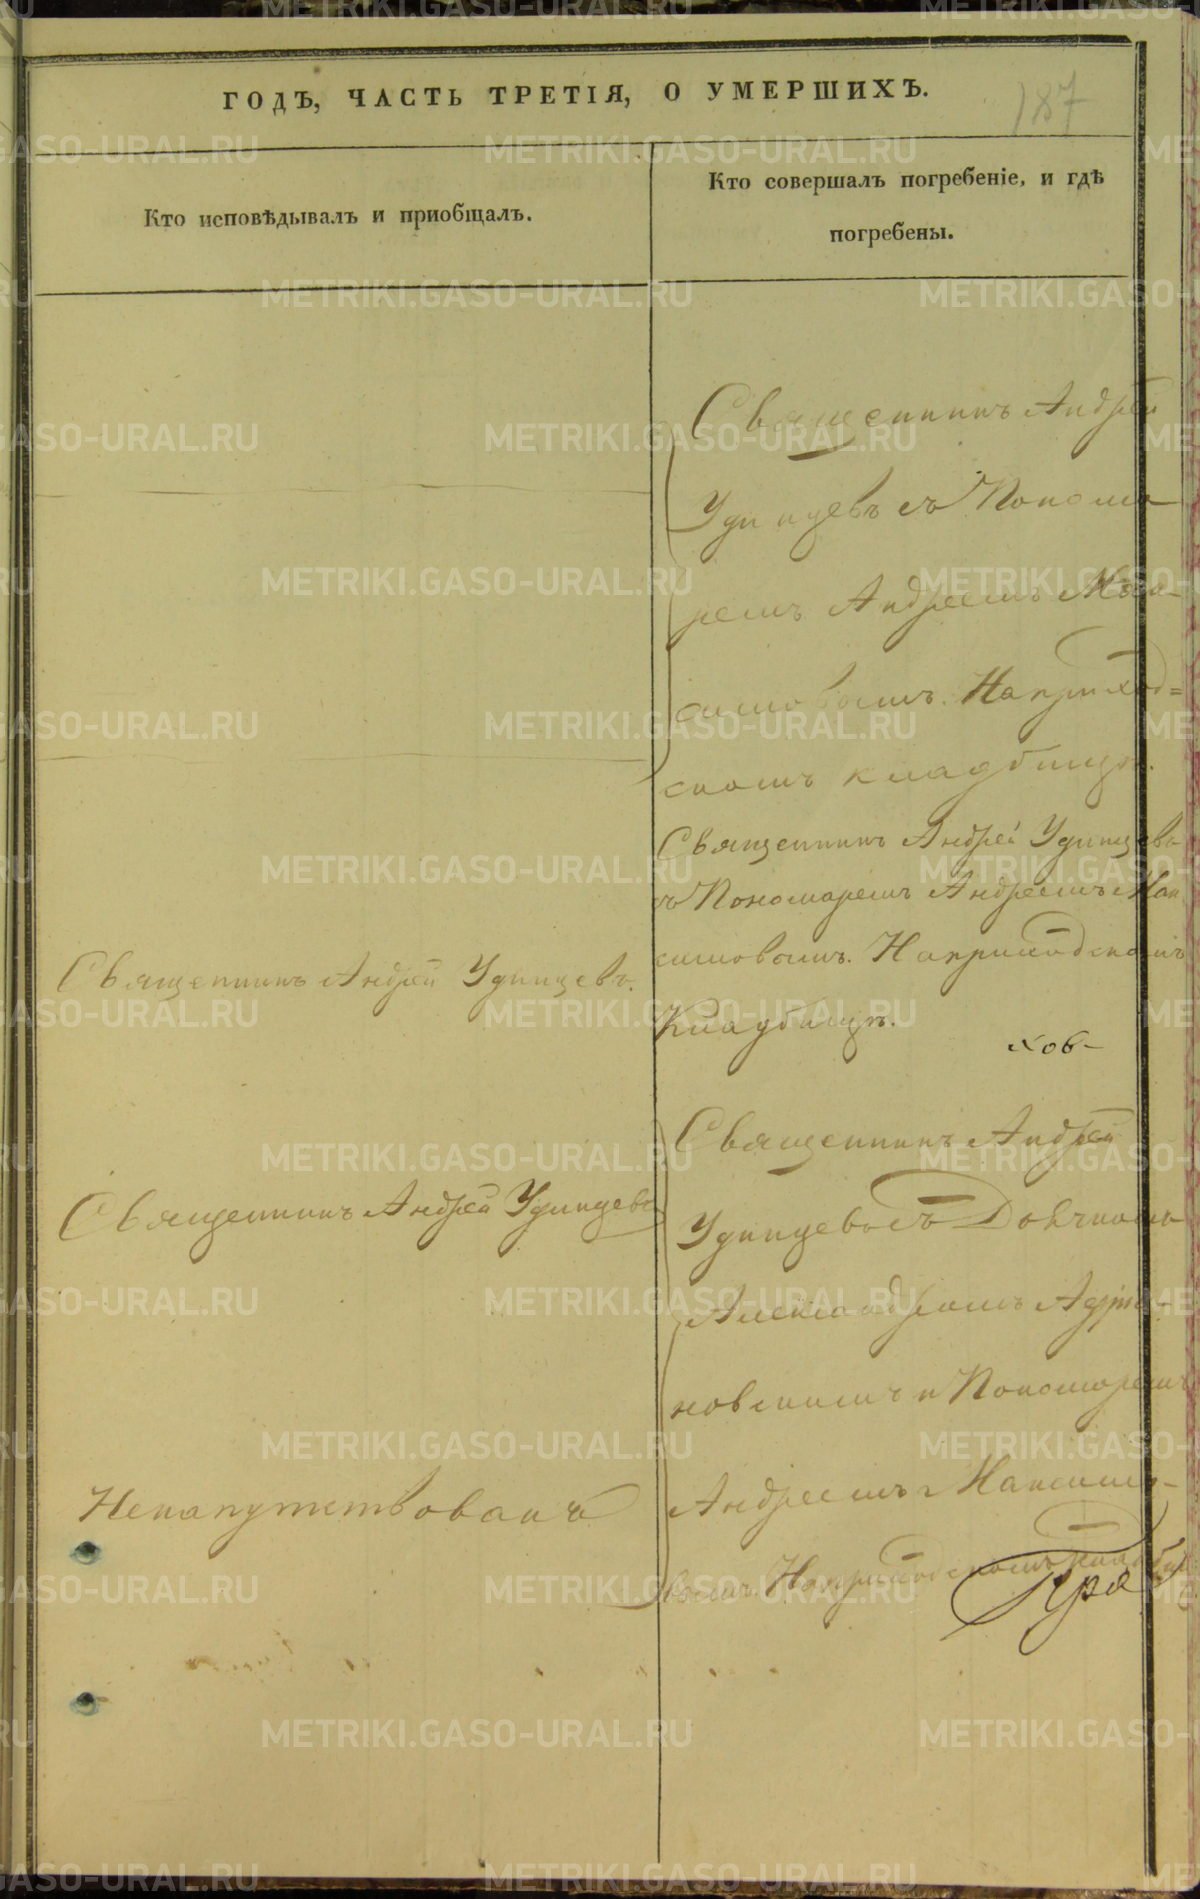 ГОДЪ, ЧАСТЬ ТРЕТІЯ, О УМЕРШИХЪ.
187
Кто исповѣдывалъ и пріобщалъ.
Кто совершалъ погребеніе, и гдѣ
погребены.
Священникъ Андрей
Удинцевъ съ Понома
ремъ Андреемъ Мак-
симовымъ. На приход=
скомъ кладбищѣ.
Священникъ Андрей Удинцевъ
съ Пономаремъ Андреемъ Мак
симовымъ. На приходскомъ
Кладбищѣ.
Священникъ Андрей Удинцевъ.
хов-
Священникъ Андрей
Удинцевъ съ Дьячкомъ
Александромъ
новскимъ и Пономаремъ
Андреемъ Максимо-
вымъ. На приходскомъ кладби
Священникъ Андрей Удинцевъ
Ненапутствованъ
METRIKI.GASO-URAL.RU